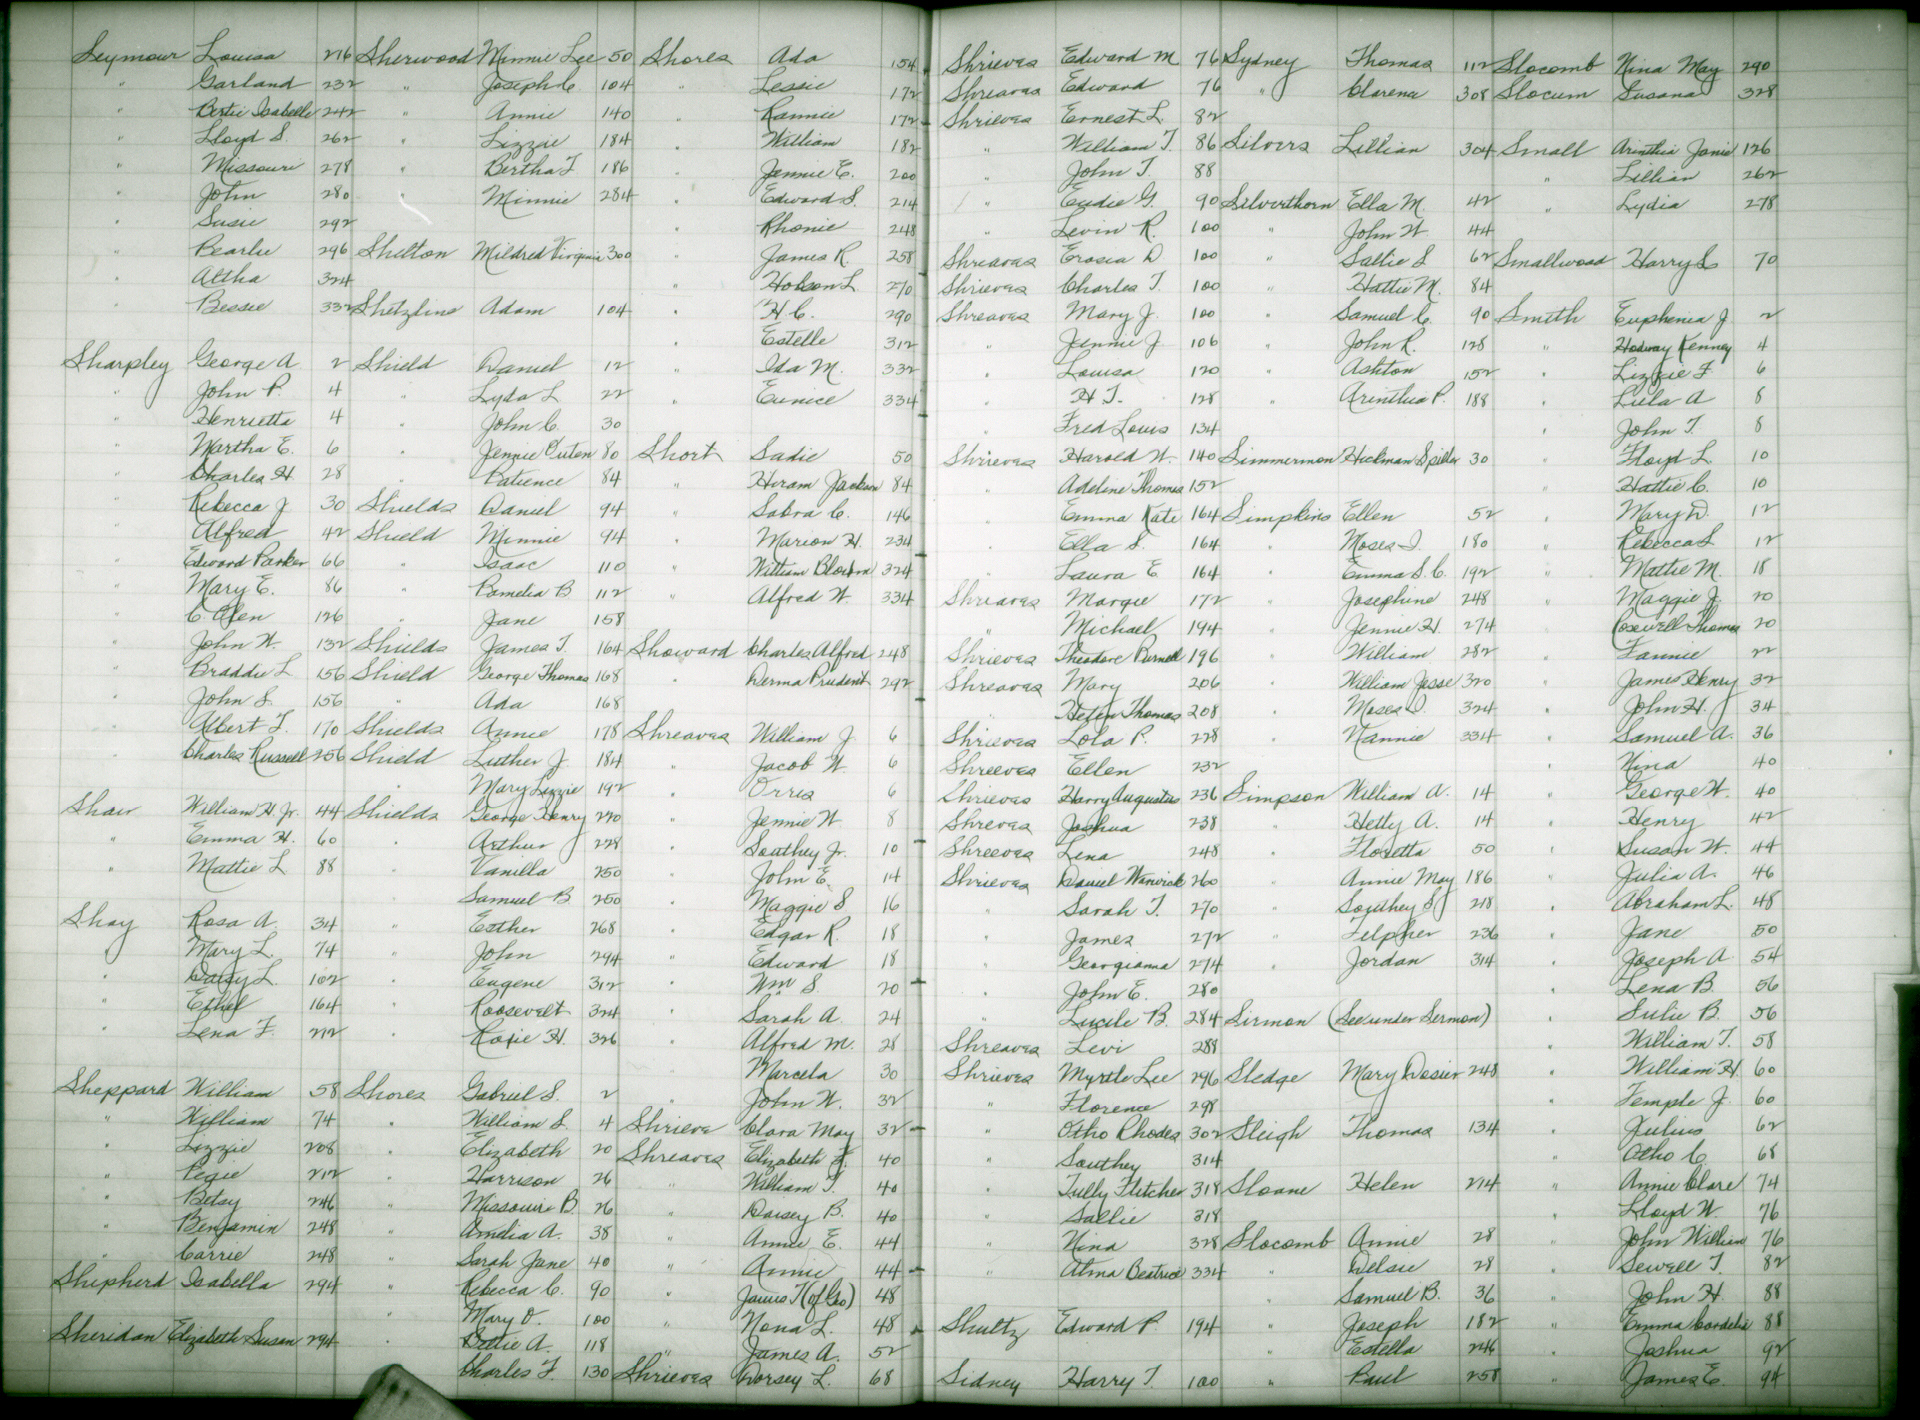 Seymour Louisa 216
" Garland 232
" Bertie Isabelle 242
" Lloyd S. 262
" Missouri 278
" John 280
" Susie 292
" Pearlie 296
" Altha 324
" Bessie 332
Sharpley George A 2
" John P. 4
" Henrietta 4
" Martha E. 6
" Charles H. 28
" Rebecca J 30
" Alfred 42
" Edward Parker 66
" Mary E. 86
" C. Olen 126
" John W. 132
" Braddie L 156
" John S. 156
" Albert T. 170
" Charles Russell 256
Shaw William H. Jr. 44
" Emma H. 60
" Mattie L 88
Shay Rosa A. 34
" Mary L. 74
" Daisy L. 102
" Ethel 164
" Lena F. 212
Sheppard William 58
" William 74
" Lizzie 208
" 212
" Betsy 246
" Benjamin 248
" Carrie 248
Shepherd Isabella 294
Sheridan Elizabeth Susan 294
Sherwood Minnie Lee 50
" Joseph C 104
" Annie 140
" Lizzie 184
" Bertha F 186
" Minnie 284
Shelton Mildred Virginia 300
Shetzline Adam 104
Shield Daniel 12
" Lyda L 22
" John C. 30
" Jennie Outen 80
" Patience 84
Shields Daniel 94
Shield Minnie 94
" Isaac 110
" Pamelia B 112
" Jane 158
Shields James T. 164
Shield George Thomas 168
" Ada 168
Shields Annie 178
Shield Luther J. 184
" Mary Lizzie 192
Shields George Henry 220
" Arthur 228
" Vanilla 250
" Samuel B 250
" Esther 268
" John 294
" Eugene 312
" Roosevelt 324
" Rosie H. 326
Shores Gabriel S. 2
" William S. 4
" Elizabeth 20
" Harrison 26
" Missouri B 26
" Amelia A. 38
" Sarah Jane 40
" Rebecca C. 90
" Mary O. 100
" Bettie A. 118
" Charles F. 130
Shores Ada 154
" Lessie 172
" Rannie 172
" William 182
" Jennie E. 200
" Edward S. 214
" Rhonie 248
" James R. 258
" Hobson L 270
" H. C. 290
" Estelle 312
" Ida M. 332
" Eunice 334
Short Sadie 50
" Hiram Jackson 84
" Sabra C. 146
" Marion H. 234
" William 324
" Alfred W. 334
Showard Charles Alfred 248
" Derma Prudent 292
Shreaves William J 6
" Jacob W. 6
" Orris 6
" Jennie W. 8
" Southey Jr. 10
" John E. 14
" Maggie S 16
" Edgar R. 18
" Edward 18
" Wm S 20
" Sarah A. 24
" Alfred M. 28
" Marcela 30
" John W. 32
Shrieve Clara May 32
Shreaves Elizabeth F. 40
" William T. 40
" Daisey B. 40
" Annie E. 44
" Annie 44
" James T (of Geo) 48
" Nona L. 48
" James A. 52
Shrieves Dorsey L. 68
Shrieves Edward M 76
Shreaves Edward 76
Shrieves Ernest L. 82
" William T. 86
" John T. 88
" Eudie G. 90
" Levin R. 100
Shreaves Erosia D 100
Shrieves Charles T. 100
Shreaves Mary J. 100
" Jennie J. 106
" Louisa 120
" H T. 128
" Fred Louis 134
Shrieves Harold W. 140
" Adeline Thomas 152
" Emma Kate 164
" Ella S. 164
" Laura E 164
Shreaves Margie 172
" Michael 194
Shrieves Theodore Purnell 196
Shreaves Mary 206
" Helen Thomas 208
Shrieves Lola P. 228
Shreeves Ellen 232
Shrieves Harry Augustus 236
Shreves Joshua 238
Shreeves Lena 248
Shrieves Daniel Warwick 260
" Sarah T. 270
" James 272
" Georgianna 274
" John E. 280
" Lucile B. 284
Shreaves Levi 288
Shrieves Myrtle Lee 296
" Florence 298
" Otho Rhodes 302
" Southey 314
" Tully Fletcher 318
" Sallie 318
" Nina 328
" Alma Beatrice 334
Shultz Edward P. 194
Sidney Harry T. 100
Sydney Thomas 112
" Clarence 308
Silvers Lillian 304
Silverthorn Ella M. 42
" John W 44
" Sallie S 62
" Hattie M. 84
" Samuel C. 90
" John R. 128
" Ashton 152
" Arinthia P. 188
Simmermon Hickman Spiller 30
Simpkins Ellen 52
" Moses I. 180
" Emma S. C. 192
" Josephine 248
" Jennie H. 274
" William 282
" William Jesse 320
" Moses I. 324
" Nannie 334
Simpson William A. 14
" Hetty A. 14
" Floretta 50
" Annie May 186
" Southey S 218
" Telpher 236
" Jordan 314
Sirmon (See under Sermon)
Sledge Mary Desier 248
Sleigh Thomas 134
Sloane Helen 214
Slocomb Annie 28
" Delsie 28
" Samuel B. 36
" Joseph 182
" Estella 246
" Paul 258
Slocomb Nina May 290
Slocum Susana 328
Small Arinthia Janie 126
" Lillian 262
" Lydia 278
Smallwood Harry L 70
Smith Euphenia J 2
" Kenney 4
" Lizzie F. 6
" Lula A 8
" John T. 8
" Floyd L. 10
" Hattie C. 10
" Mary D. 12
" Rebecca L 12
" Mattie M. 18
" Maggie J. 20
" Rosewell Thomas 20
" Fannie 22
" James Henry 32
" John H. 34
" Samuel A. 36
" Nina 40
" George W. 40
" Henry 42
" Susan W. 44
" Julia A. 46
" Abraham L. 48
" Jane 50
" Joseph A 54
" Lena B. 56
" Sulie B. 56
" William T. 58
" William H. 60
" Temple J. 60
" Julius 62
" Otho C 68
" Annie Clare 74
" Lloyd W. 76
" John William 76
" Sewell T. 82
" John H. 88
" Emma Cordelia 88
" Joshua 92
" James E. 94